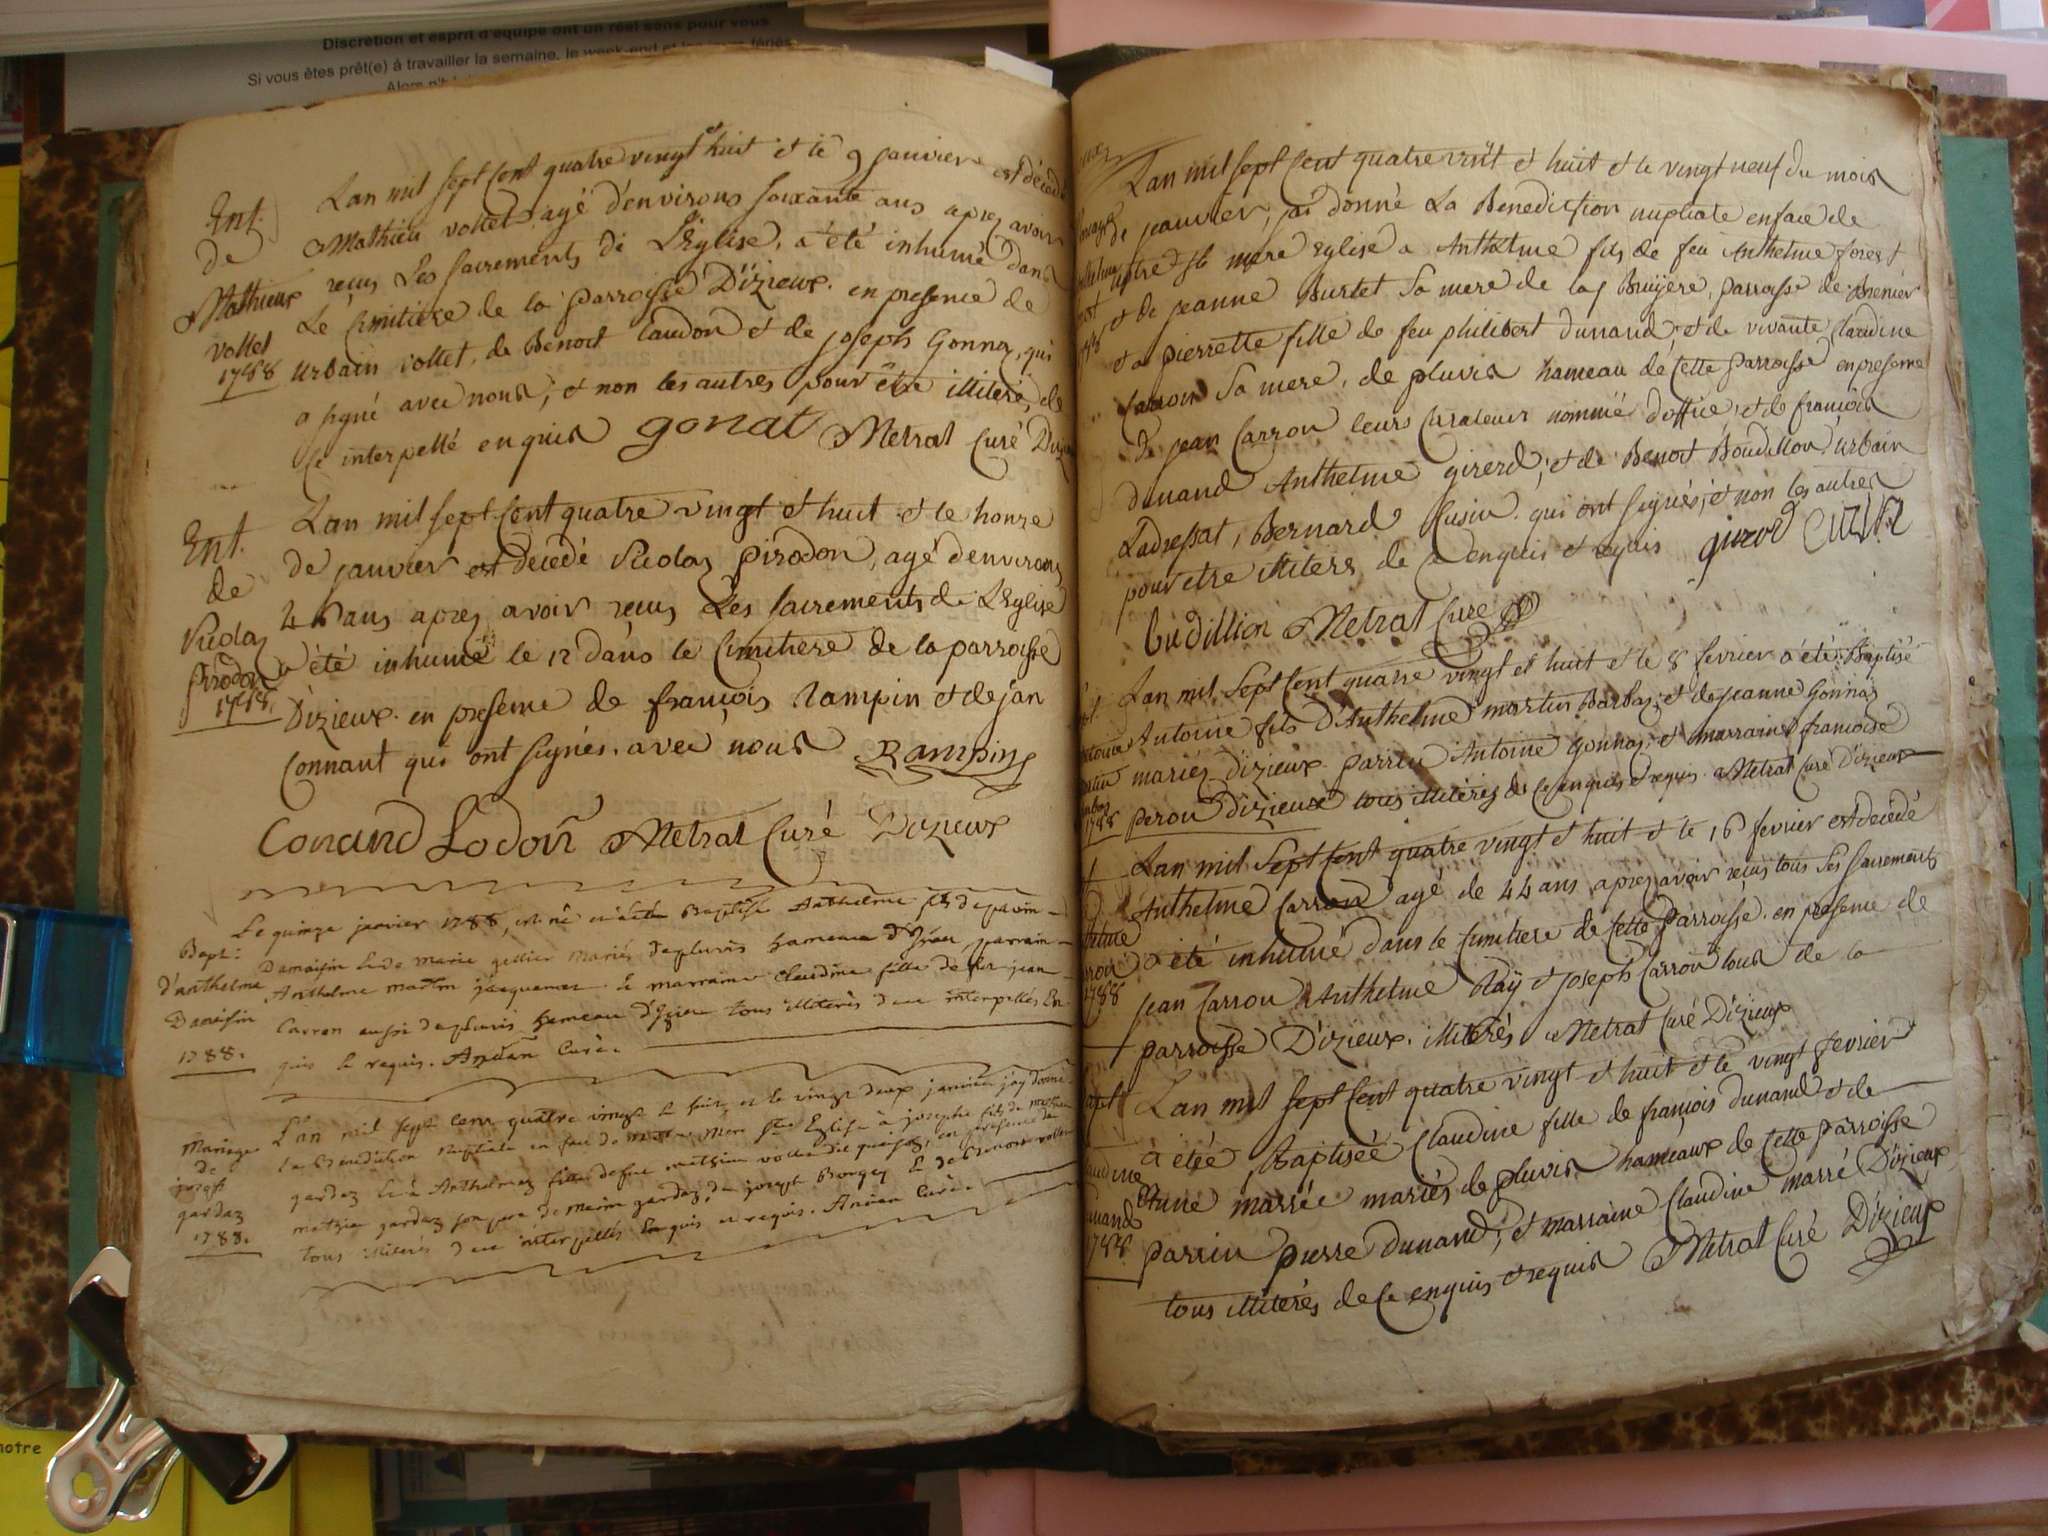 Discrétion et esprit d'équipe ont un réel sens pour vous
Si vous êtes prêt(e) à travailler la semaine, le week-end et
Ent.
de
Mathieux
vollet
1788
Lan mil sept cent quatre vingt huit et le 9 janvier est décédé
Mathieu vollet agé d'environs soixante ans apres avoir
reçus Les sacrements de L'Eglise, a été inhumé dans
Le Cimitiere de la parroisse D'izieux. en presence de
urbain vollet, de Benoit Caudon et de joseph Gonnaz, qui
a signé avec nous, et non les autres pour être illiteré, de
ce interpellé enquis gonat Metral Curé
Ent.
de
Nicolas
pirodon
1788.
Lan mil sept cent quatre vingt et huit et le honze
de janvier est decedé Nicolaz pirodon, agé d'environs
46 ans apres avoir reçus Les sacrements de L'Eglise
a été inhumé le 12 dans le Cimitiere de la parroisse
D'izieux. en presence de françois Rampin et de jan
Connant qui ont signés. avec nous Rampin
Conand Lodoin Metral Curé Dizieux
Bapt:
d'anthelme
Damaisin
1788.
Le quinze janvier 1788, est né et a été Baptisé Anthelme fils de
Damaisin et de marie gellier mariés de pluvis hameau d'Izieu parrain
Anthelme martin jacquemet et marraine Claudine fille de feu jean
Carron aussi de pluvis hameau d'Izieu tous illiterés de ce interpellés En
quis et requis. Ancian Curé.
Mariage
de
joseph
gardaz
1788.
L'an mil sept cent quatre vingt et huit et le vingt deux janvier j'ay donné
la Benediction Nuptiale en face de notre Mere Ste Eglise à josephe fils de
gardaz et à Anthelmaz fille de feu mathieu vollet dit en présence de
mathieu gardaz son pere de gardaz, de joseph Borgey et de Benoit vollet
tous illiterés de ce interpellés Enquis et requis. Ancian Curé.
Lan mil sept cent quatre vint et huit et le vingt neuf du mois
de janvier, j'ai donné La Benediction nuptiale en face de
notre ste mere Eglise a Anthelme fils de feu Anthelme forest
et de jeanne Burtet sa mere de la Bruÿere, parroisse de Brenier
et a pierrette fille de feu philibert dunand et de vivante Claudine
Carron sa mere, de pluvis hameau de Cette parroisse en presence
de jean Carron leurs Curateur nommé d'office, et de françois
dunand Anthelme girerd, et de Benoit Boudillon, urbain
Ladressat, Bernard Cusin. qui ont signés, et non les autres
pour etre illiteré de ce enquis et requis girod CUZIN
budillion Metral Curé
1788
Lan mil Sept Cent quatre vingt et huit et le 8 fevrier a été Baptisé
Antoine fils d'Anthelme martin Barbaz, et de jeanne Gonnaz
mariéz dizieux. parrin Antoine gonnaz, et marraine françoise
peron dizieux tous illiterez de ce enquis et requis. Metral Curé D'izieux
1788
Lan mil Sept Cent quatre vingt et huit et le 16 fevrier est decédé
Anthelme Carron agé de 44 ans apres avoir reçus tous Ses Sacrements
a été inhumé dans le Cimitiere de Cette parroisse. en presence de
jean Carron Anthelme Raÿ et joseph Carron tous de la
parroisse D'izieux. illiterés Metral Curé D'izieux
1788.
Lan mil sept Cent quatre vingt et huit et le vingt fevrier
à étéé Baptiséé Claudine fille de françois dunand et de
marrée mariés de pluvis hameaux de Cette parroisse
parrin pierre dunand, et marraine Claudine marré D'izieux
tous illiterés de Ce enquis et requis Metral Curé D'izieux
notre